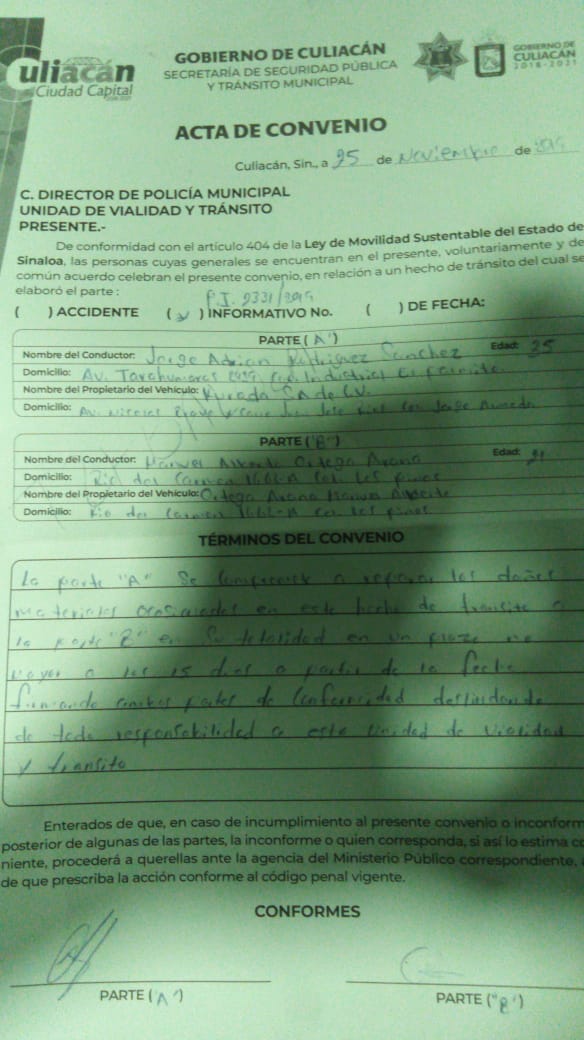 Culiacán
Ciudad Capital
GOBIERNO DE CULIACÁN
SECRETARÍA DE SEGURIDAD PÚBLICA
Y TRÁNSITO MUNICIPAL
GOBIERNO DE
CULIACÁN
2018-2021
ACTA DE CONVENIO
Culiacán, Sin., a 25 de Noviembre de 2019
C. DIRECTOR DE POLICÍA MUNICIPAL
UNIDAD DE VIALIDAD Y TRÁNSITO
PRESENTE.-
De conformidad con el artículo 404 de la Ley de Movilidad Sustentable del Estado de
Sinaloa, las personas cuyas generales se encuentran en el presente, voluntariamente y de
común acuerdo celebran el presente convenio, en relación a un hecho de tránsito del cual se
elaboró el parte :
P.I. 2331/2019
( ) ACCIDENTE ( ✓ ) INFORMATIVO No. ( ) DE FECHA:
PARTE ("A")
Nombre del Conductor: Jorge Adrian Rodriguez Sanchez Edad: 25
Domicilio: Av. Tarahumaras
Nombre del Propietario del Vehículo: SA de C.V.
Domicilio: Av. Nicolas Bravo
PARTE ("B")
Nombre del Conductor: Manuel Alberto Ortega Arana Edad: 21
Domicilio: Rio del Carmen 1662-A Col. Los pinos
Nombre del Propietario del Vehículo: Ortega Arana Manuel Alberto
Domicilio: Rio del Carmen 1662-A Col Los pinos
TÉRMINOS DEL CONVENIO
La parte "A" Se compromete a reparar los daños
materiales ocasionados en este hecho de transito a
la parte "B" en su totalidad en un plazo no
mayor a los 15 dias a partir de la fecha
firmando ambas partes de Conformidad deslindando
de toda responsabilidad a esta Unidad de Vialidad
y transito
Enterados de que, en caso de incumplimiento al presente convenio o inconform
posterior de algunas de las partes, la inconforme o quien corresponda, si así lo estima co
niente, procederá a querellas ante la agencia del Ministerio Público correspondiente,
de que prescriba la acción conforme al código penal vigente.
CONFORMES
PARTE ("A")
PARTE ("B")